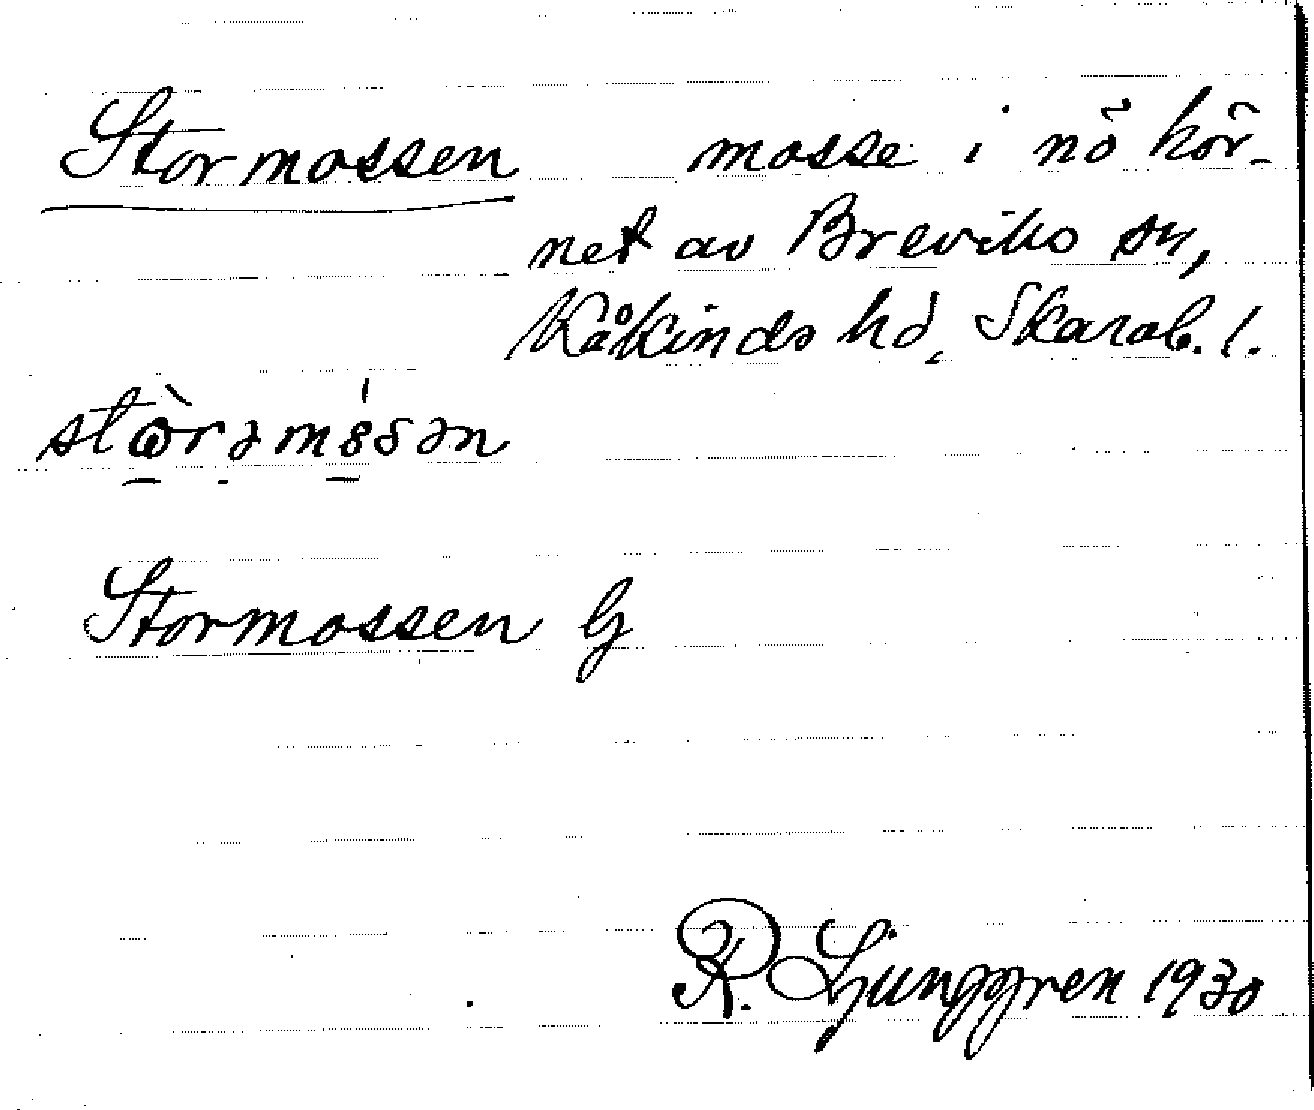 Stormossen mosse i nö hör-
net av Breviks sn,
Kåkinds hd, Skarab. l.
Stormossen G
R. Ljunggren 1930